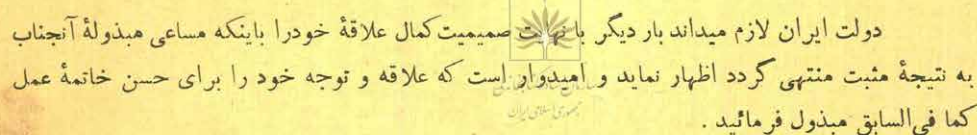 دولت ایران لازم میداند بار دیگر با نهایت صمیمیت کمال علاقهٔ خودرا باینکه مساعی مبذولهٔ آنجناب
به نتیجهٔ مثبت منتهی گردد اظهار نماید و امیدوار است که علاقه و توجه خود را برای حسن خاتمهٔ عمل
جمهوری اسلامی ایران
کما فی‌السابق مبذول فرمائید .